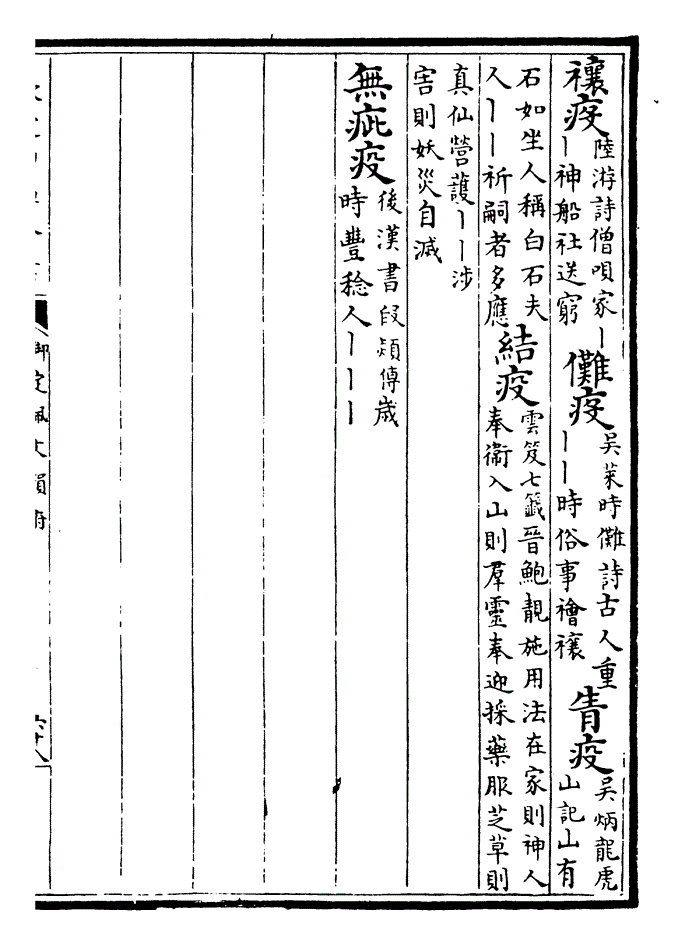 禳疫陸游詩僧唄家丨丨神船社送窮 儺疫吳萊時儺詩古人重丨丨時俗事禬禳 眚疫吳炳龍虎山記山有
石如坐人稱白石夫人丨丨祈嗣者多應 結疫雲笈七籤晉鮑靚施用法在家則神人奉衞入山則羣靈奉迎採藥服芝草則
真仙營護丨丨涉害則妖災自滅
無疵疫後漢書段熲傳歲時豐稔人丨丨丨
御定佩文韻府